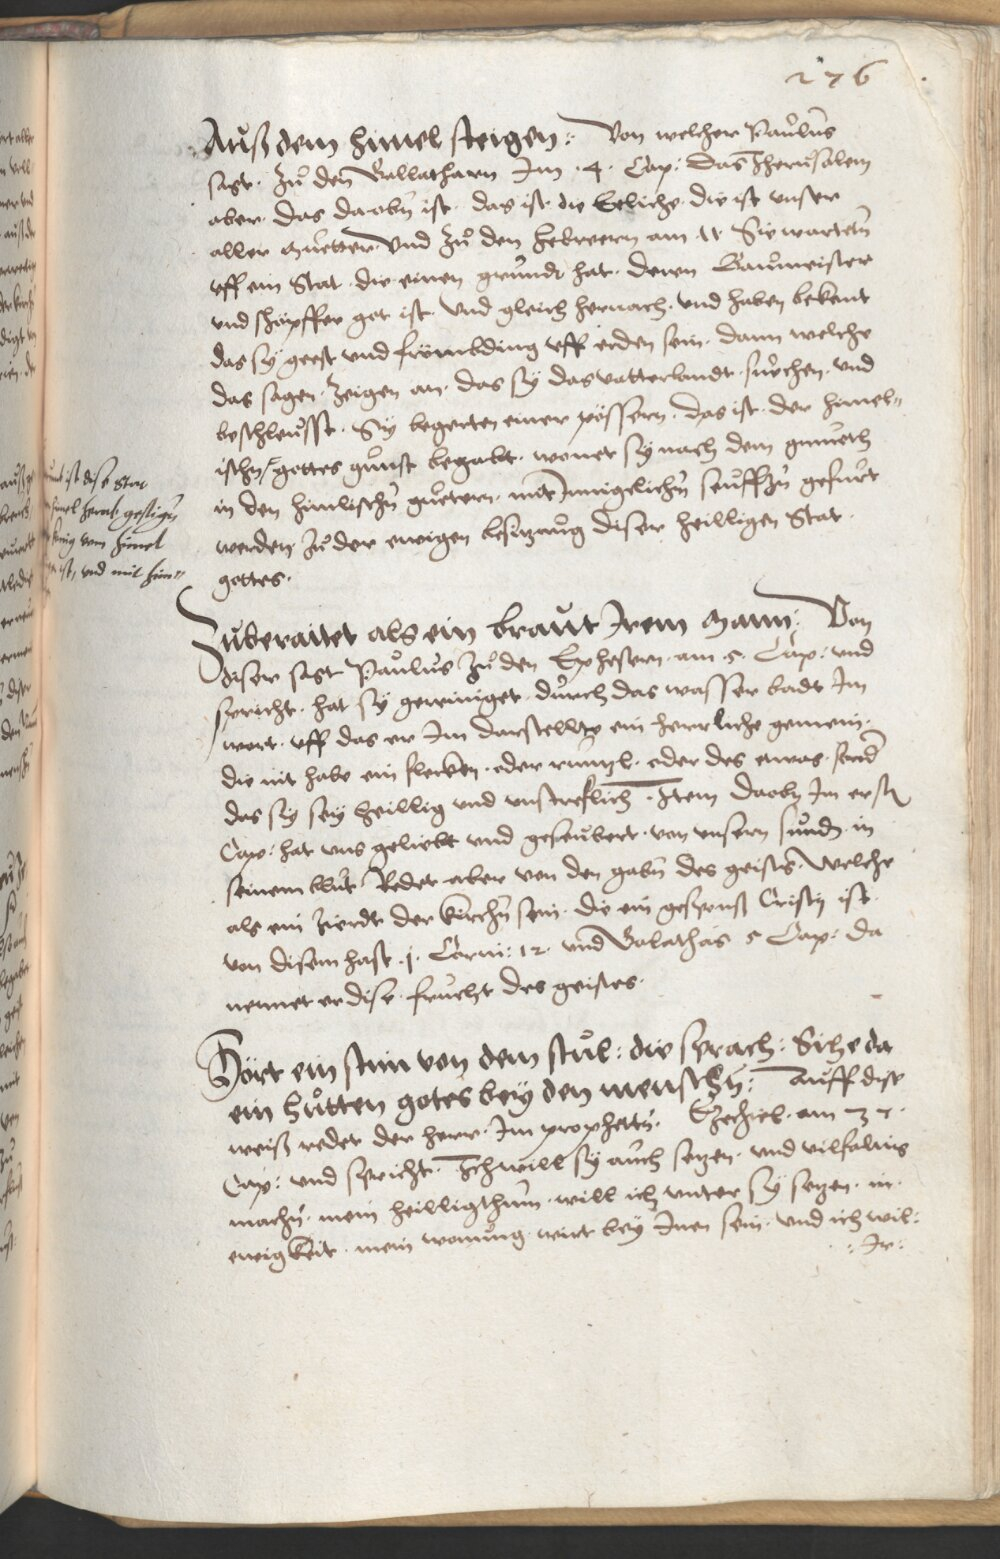 276
Auß dem himel steigen: Von welcher Paulus
sagt. Zu den Gallathern Im .4. Cap: Das Jherusalem
aber. das daobn ist. das ist die Eeliche. die ist unser
aller muetter. Und Zů den hebreern am 11 Sie wartetn
uff ein Stat. die einen grundt hat. deren Baumeister
und schöpffer got ist. Und gleich hernach. und haben bekent
das sy gest und frömbding uff erden sein. dann welche
das sagen. Zeigen an. das sy das vatterlandt. suchen. und
beschleusst. Sy begerten einer pössern. das ist. der himel„
ischn, gottes gunst begabt. wonet sy nach dem gmueth
in den himlischn guetern. mit seuffzn gefurt
werden Zu der ewigen besitzung diser heilligen Stat
gottes.
ist dise Stat
himel herab gestign
künig vom himel
ist, und mit him„
Zuberaitet als ein braut Irem Mann: Von
diser sagt Paulus Zu den Ephesern. am 5. Cap: und
spricht. hat sy gereiniget. durch das wasser badt Im
wort. uff das er Im darstellte ein herrliche gemein.
die nit habe ein flecken. oder runtzl. oder des etwas. sond
das sy sey heillig und unstreflich. Item daobn Im erstn
Cap: hat uns geliebt und geseubert. von unsern sundn in
seinem blut Redet aber von den gabn des geists. Welche
als ein Zierdt der kirchn sein. die ein gesponß Cristy ist
von disem hast .j. Corin: 12. und Galathas 5 Cap: da
nennet er dise. frucht des geistes.
Hört ein stim von dem stul: die sprach: Sihe da
ein hütten gotes bey den menschn: Auff dise
weiß redet der herr. Im prophettn. Ezechiel. am 37.
Cap: und spricht. Ich will sy auch setzen. und vilfaltig
machn. mein heilligthum. will ich unter sy setzen. in
ewigkeit. mein wonung. wirt bey Inen sein. und ich wil:
:Ir: